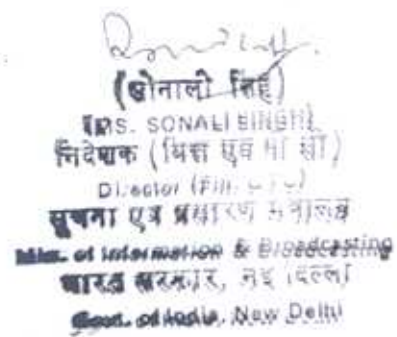 (सोनाली सिंह)
(MS. SONALI SINGH)
निदेशक (वित्त एवं
Director (Fin.
सूचना एवं प्रसारण मंत्रालय
Min. of Information & Broadcasting
भारत सरकार, नई दिल्ली
Govt. of India, New Delhi